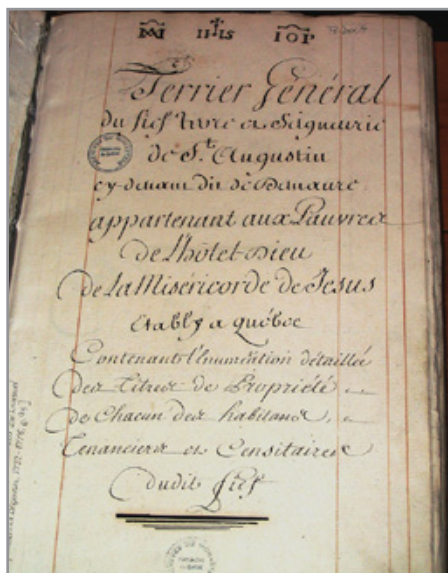 IHS
Terrier Général
du fief Terre et Seigneurie
de St. Augustin
cy devant dit de Demaure
appartenant aux Pauvres
de L'hôtel-Dieu
de La Miséricorde de Jesus
Etably a Québec
Contenant l'Enumération détaillée
des Titres de Propriété
de Chacun des habitans
Tenanciers et Censitaires
dudit fief